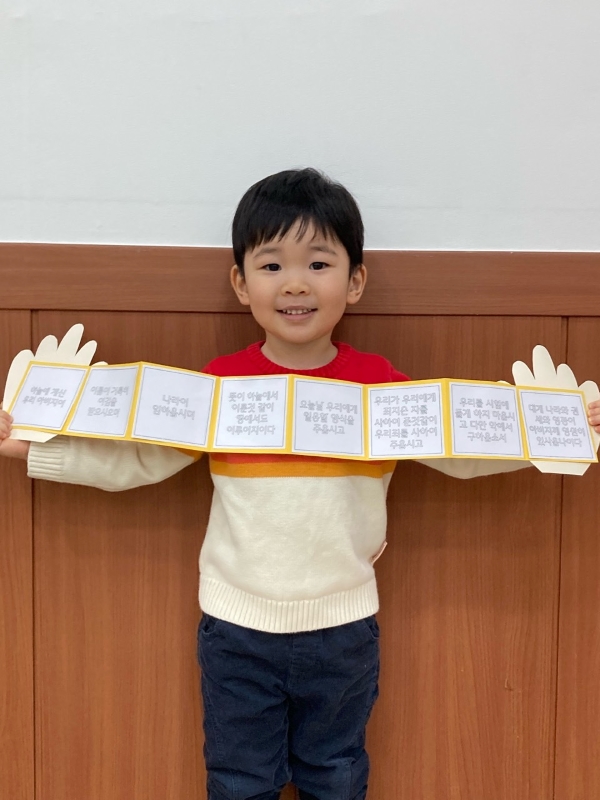 하늘에 계신
우리 아버지여
이름이 거룩히
여김을
받으시오며
나라이
임하옵시며
뜻이 하늘에서
이룬것 같이
땅에서도
이루어지이다
오늘날 우리에게
일용할 양식을
주옵시고
우리가 우리에게
죄지은 자를
사하여 준것같이
우리죄를 사하여
주옵시고
우리를 시험에
들게 하지 마옵시
고 다만 악에서
구하옵소서
대게 나라와 권
세와 영광이
아버지께 영원히
있사옵나이다